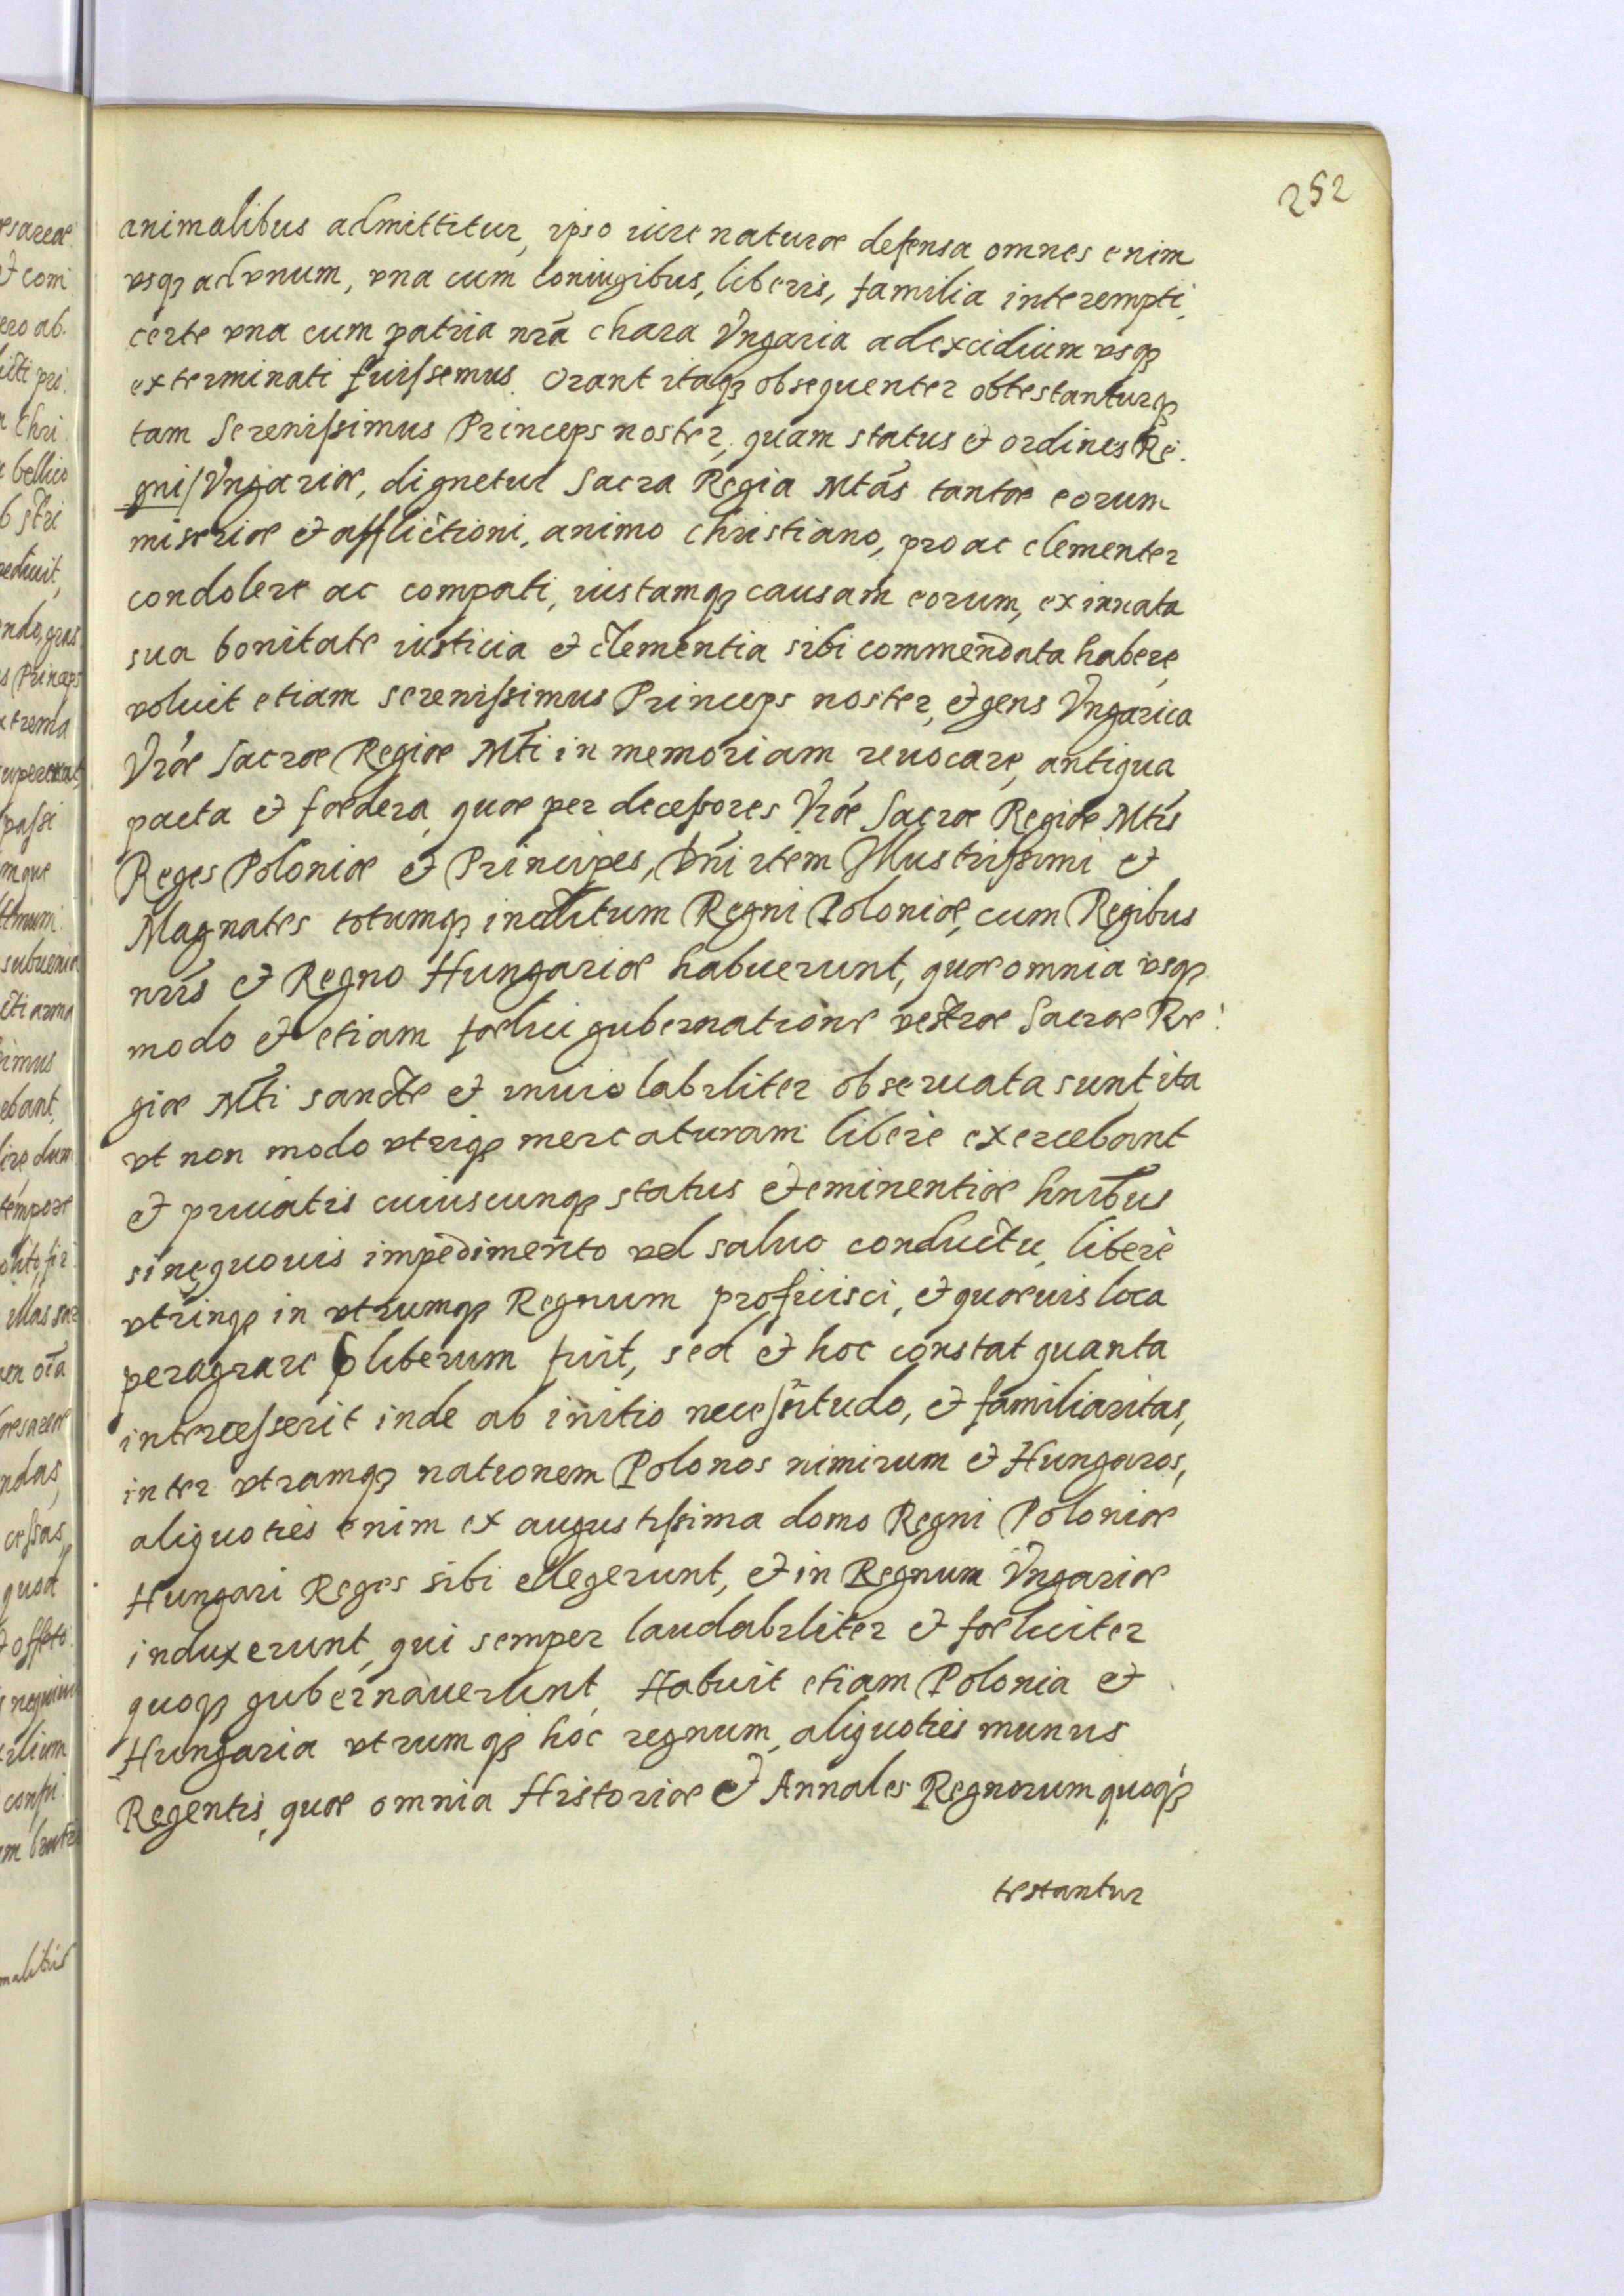 252
animalibus admittitur, ipso iure naturæ defensa omnes enim
vsqꝫ ad vnum, vna cum coniugibus, liberis, familia interempti,
certe vna cum patria nr̃a chara Vngaria ad excidium vsqꝫ
exterminati fuiſsemus. Orant itaqꝫ obsequenter obtestanturqꝫ
tam Sereniſsimus Princeps noster, quam status et ordines Re.
gni Vngariæ, dignetur Sacra Regia Mtãs tantæ eorum
miseriæ et afflictioni, animo christiano, pro ac clementer
condolere ac compati, iustamqꝫ causam eorum, ex innata
sua bonitate iusticia et clementia sibi commendata habere,
voluit etiam sereniſsimus Princeps noster, et gens Vngarica
Vr̃æ Sacræ Regiæ Mt̃i in memoriam reuocare, antiqua
pacta et fœdera, quæ per deceſsores Vr̃æ Sacræ Regiæ Mt̃is
Reges Poloniæ et Principes, Dñi item Illustriſsimi et
Magnates totumqꝫ inclitum Regni Poloniæ, cum Regibus
nr̃is et Regno Hungariæ habuerunt, quæ omnia vsqꝫ
modo et etiam fœlici gubernatione vestræ Sacræ Re:
giæ Mt̃i sancte et inuiolabiliter obseruata sunt, ita
vt non modo vtriqꝫ mercaturam libere exercebant
et priuatis cuiuscunqꝫ status et eminentiæ hñibus
sine quouis impedimento vel saluo conductu, libere
vtrinqꝫ in vtrumqꝫ Regnum proficisci, et quæuis loca
peragrare liberum fuit, sed et hoc constat quanta
interceſserit inde ab initio neceſsitudo, et familiaritas,
inter vtramqꝫ nationem Polonos nimirum et Hungaros,
aliquoties enim ex augustiſsima domo Regni Poloniæ
Hungari Reges sibi ellegerunt, et in Regnum Vngariæ
induxerunt, qui semper laudabiliter et fœliciter
quoqꝫ gubernauerunt, Habuit etiam Polonia et
Hungaria vtrumqꝫ hoc regnum, aliquoties munus
Regentis, quæ omnia Historiæ et Annales Regnorum quoqꝫ
testantur